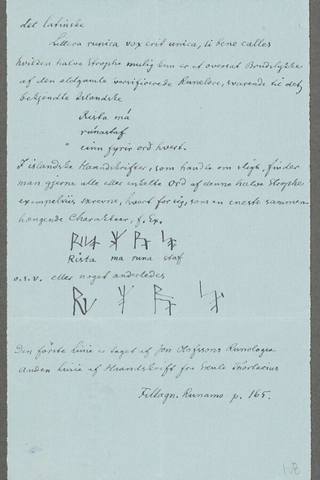 det latinske
Littera runica vox erit unica, si bene calles
hvilken halve strophe mulig kun er et oversat Brudstykke
af den eldgamle versificerede Runelære, svarende til det
bekjendte Islandske
Rista má
rúnastaf
einn fyrir ord hvert.
I islandske Haandskrifter, som handle om sligt, finder
man gjerne alle eller enkelte Ord af denne halve Strophe
exempelviis skrevne, hvert for sig, som en eneste sammen
hængende Charakteer, f. Ex.
Rista ma runa staf
o.s.v. eller noget anderledes
Den förste Linie er taget af Jon Olafssons Runologia
Anden Linie af Haandskrift fra Skule Thorlacius
Runamo p. 165.